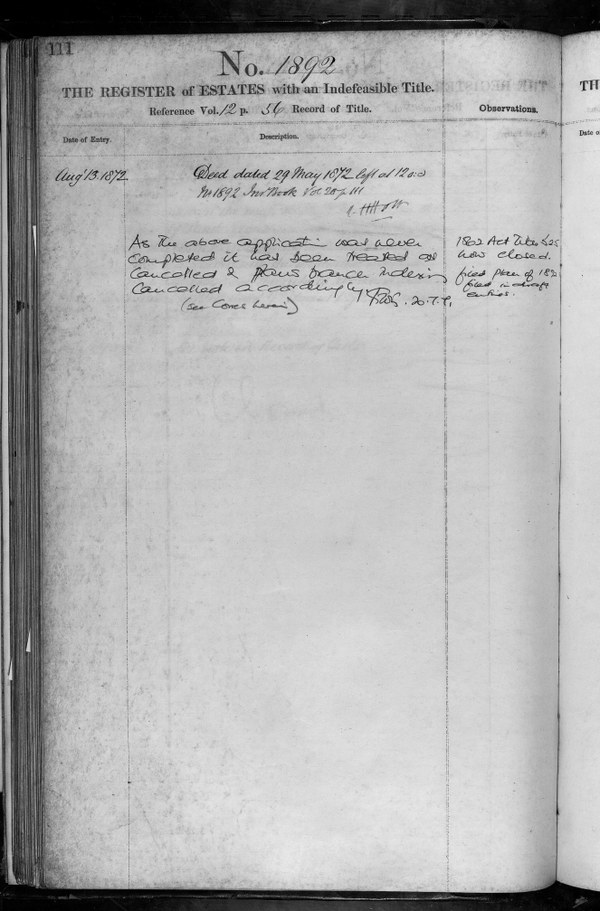 111
No. 1892
THE REGISTER of ESTATES with an Indefeasible Title.
Reference Vol. 12 p. 56 Record of Title.
Observations.
Date of Entry.
Description.
Augt 13 1872
Deed dated 29 May 1872 left at 12
No 1892 Inv Book Vol. 20 p 111
As the above application was never
completed it has been treated as
cancelled & Plans branch Indexing
cancelled accordingly
(see Corres herein)
1862 Act
now closed.
filed plan of 189
filed
entries.
TH
Date o